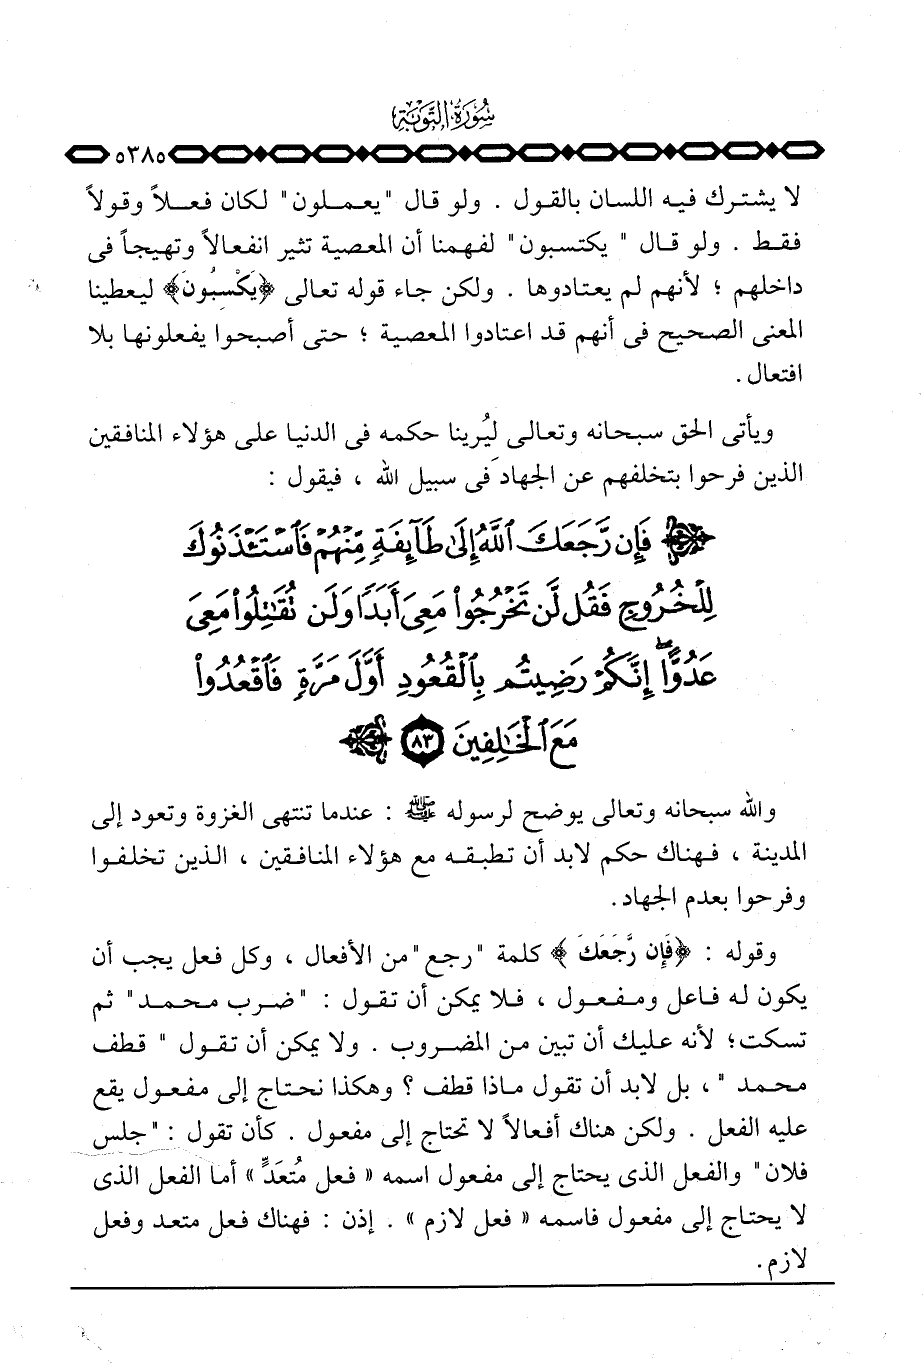 سُورَةُ التَّوْبَةِ
٥٣٨٥
لا يشترك فيه اللسان بالقول . ولو قال "يعملون" لكان فعلاً وقولاً
فقط . ولو قال " يكتسبون" لفهمنا أن المعصية تثير انفعالاً وتهيجاً فى
داخلهم ؛ لأنهم لم يعتادوها . ولكن جاء قوله تعالى ﴿يَكْسِبُونَ﴾ ليعطينا
المعنى الصحيح فى أنهم قد اعتادوا المعصية ؛ حتى أصبحوا يفعلونها بلا
افتعال .
ويأتى الحق سبحانه وتعالى ليُرينا حكمه فى الدنيا على هؤلاء المنافقين
الذين فرحوا بتخلفهم عن الجهاد فى سبيل الله ، فيقول :
﴿ فَإِن رَّجَعَكَ ٱللَّهُ إِلَىٰ طَآئِفَةٍ مِّنْهُمْ فَٱسْتَـْٔذَنُوكَ
لِلْخُرُوجِ فَقُل لَّن تَخْرُجُوا۟ مَعِىَ أَبَدًا وَلَن تُقَـٰتِلُوا۟ مَعِىَ
عَدُوًّا ۖ إِنَّكُمْ رَضِيتُم بِٱلْقُعُودِ أَوَّلَ مَرَّةٍ فَٱقْعُدُوا۟
مَعَ ٱلْخَـٰلِفِينَ ٨٣ ﴾
والله سبحانه وتعالى يوضح لرسوله ﷺ : عندما تنتهى الغزوة وتعود إلى
المدينة ، فهناك حكم لابد أن تطبقه مع هؤلاء المنافقين ، الذين تخلفوا
وفرحوا بعدم الجهاد.
وقوله : ﴿فَإِن رَّجَعَكَ ﴾ كلمة "رجع" من الأفعال ، وكل فعل يجب أن
يكون له فاعل ومفعول ، فلا يمكن أن تقول : "ضرب محمد" ثم
تسكت؛ لأنه عليك أن تبين من المضروب . ولا يمكن أن تقول " قطف
محمد "، بل لابد أن تقول ماذا قطف ؟ وهكذا نحتاج إلى مفعول يقع
عليه الفعل . ولكن هناك أفعالاً لا تحتاج إلى مفعول . كأن تقول : "جلس
فلان" والفعل الذى يحتاج إلى مفعول اسمه « فعل مُتعَدٍّ » أما الفعل الذى
لا يحتاج إلى مفعول فاسمه « فعل لازم » . إذن : فهناك فعل متعد وفعل
لازم.